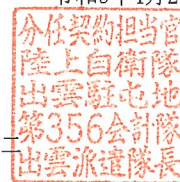 分任契約担当官
陸上自衛隊
出雲駐屯地
第356会計隊
出雲派遣隊長